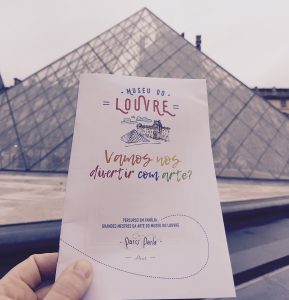 MUSEU DO
LOUVRE
Vamos nos
divertir com arte?
PERCURSO EM FAMÍLIA:
GRANDES MESTRES DA ARTE DO MUSEU DO LOUVRE